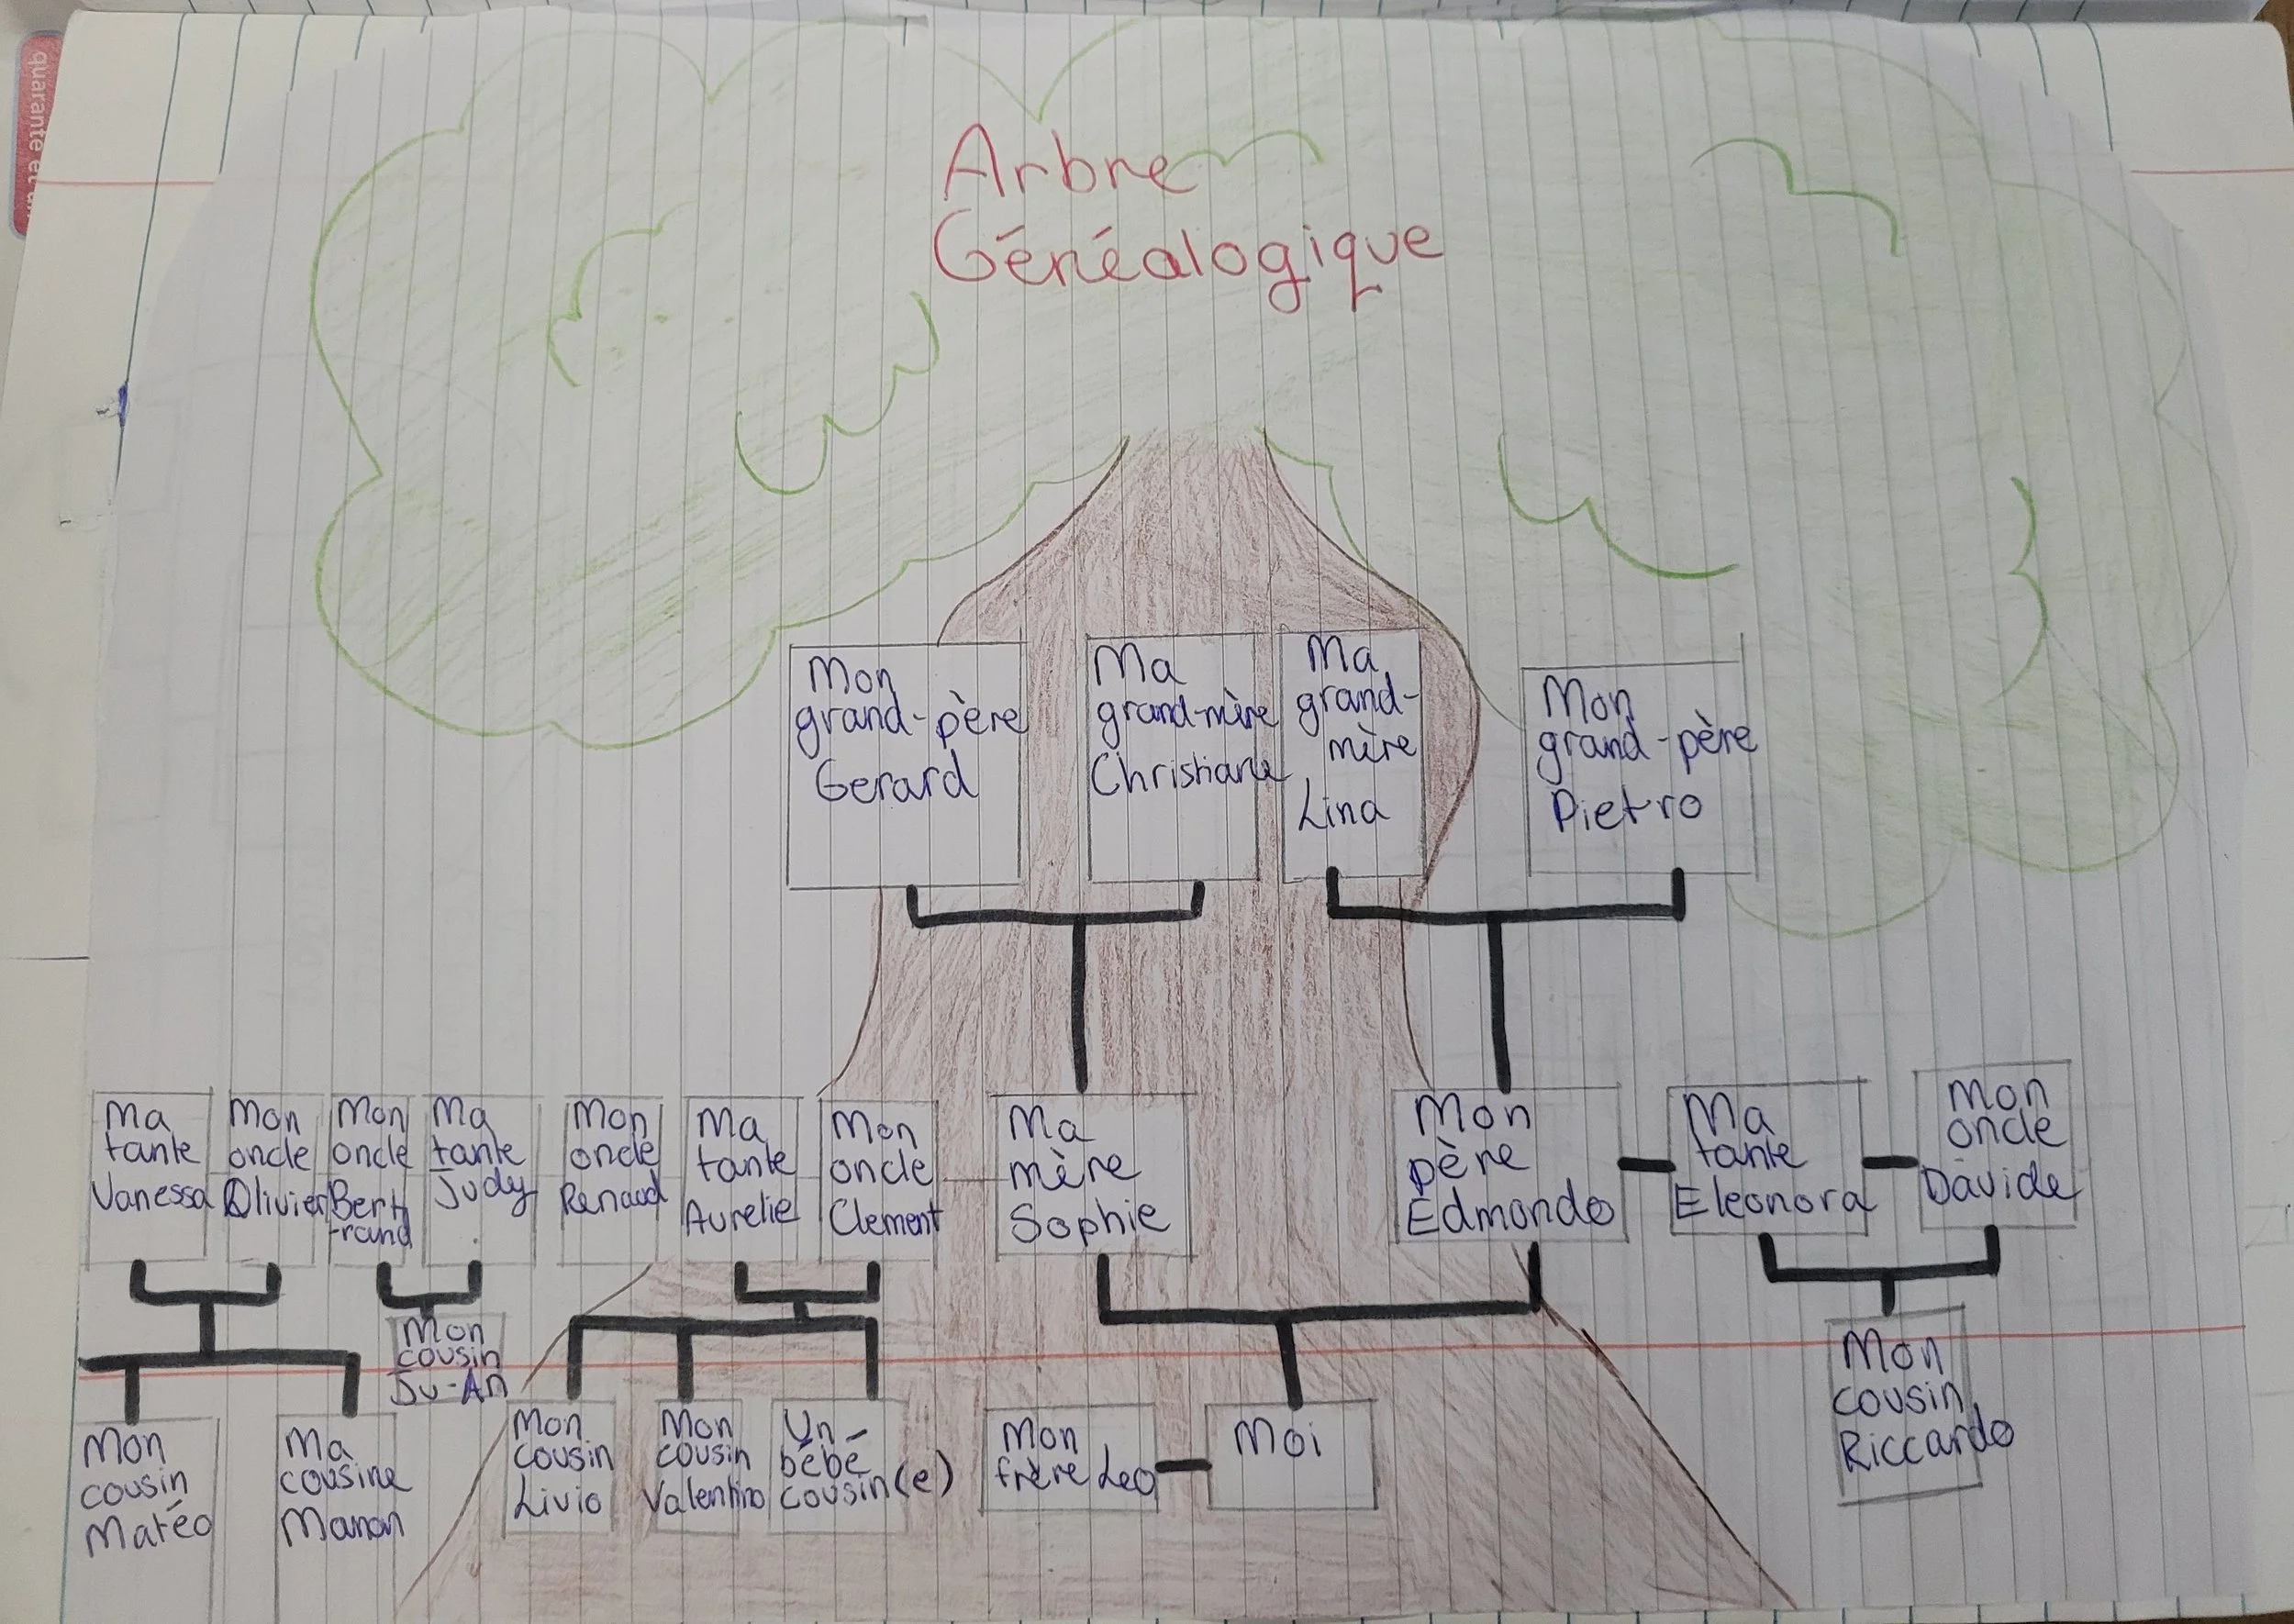 quarante et un
Arbre
Généalogique
Mon
grand-père
Gerard
Ma
grand-mère
Christiane
Ma
grand-
mère
Lina
Mon
grand-père
Pietro
Ma
tante
Vanessa
Mon
oncle
Olivier
Mon
oncle
Bert
-rand
Ma
tante
Judy
Mon
oncle
Renaud
Ma
tante
Aurelie
Mon
oncle
Clement
Ma
mère
Sophie
Mon
père
Edmondo
Ma
tante
Eleonora
Mon
oncle
Davide
Mon
cousin
Matéo
Ma
cousine
Manon
Mon
cousin
Ju-An
Mon
cousin
Livio
Mon
cousin
Valentino
Un
bébé
cousin(e)
Mon
frère Leo
Moi
Mon
cousin
Riccardo